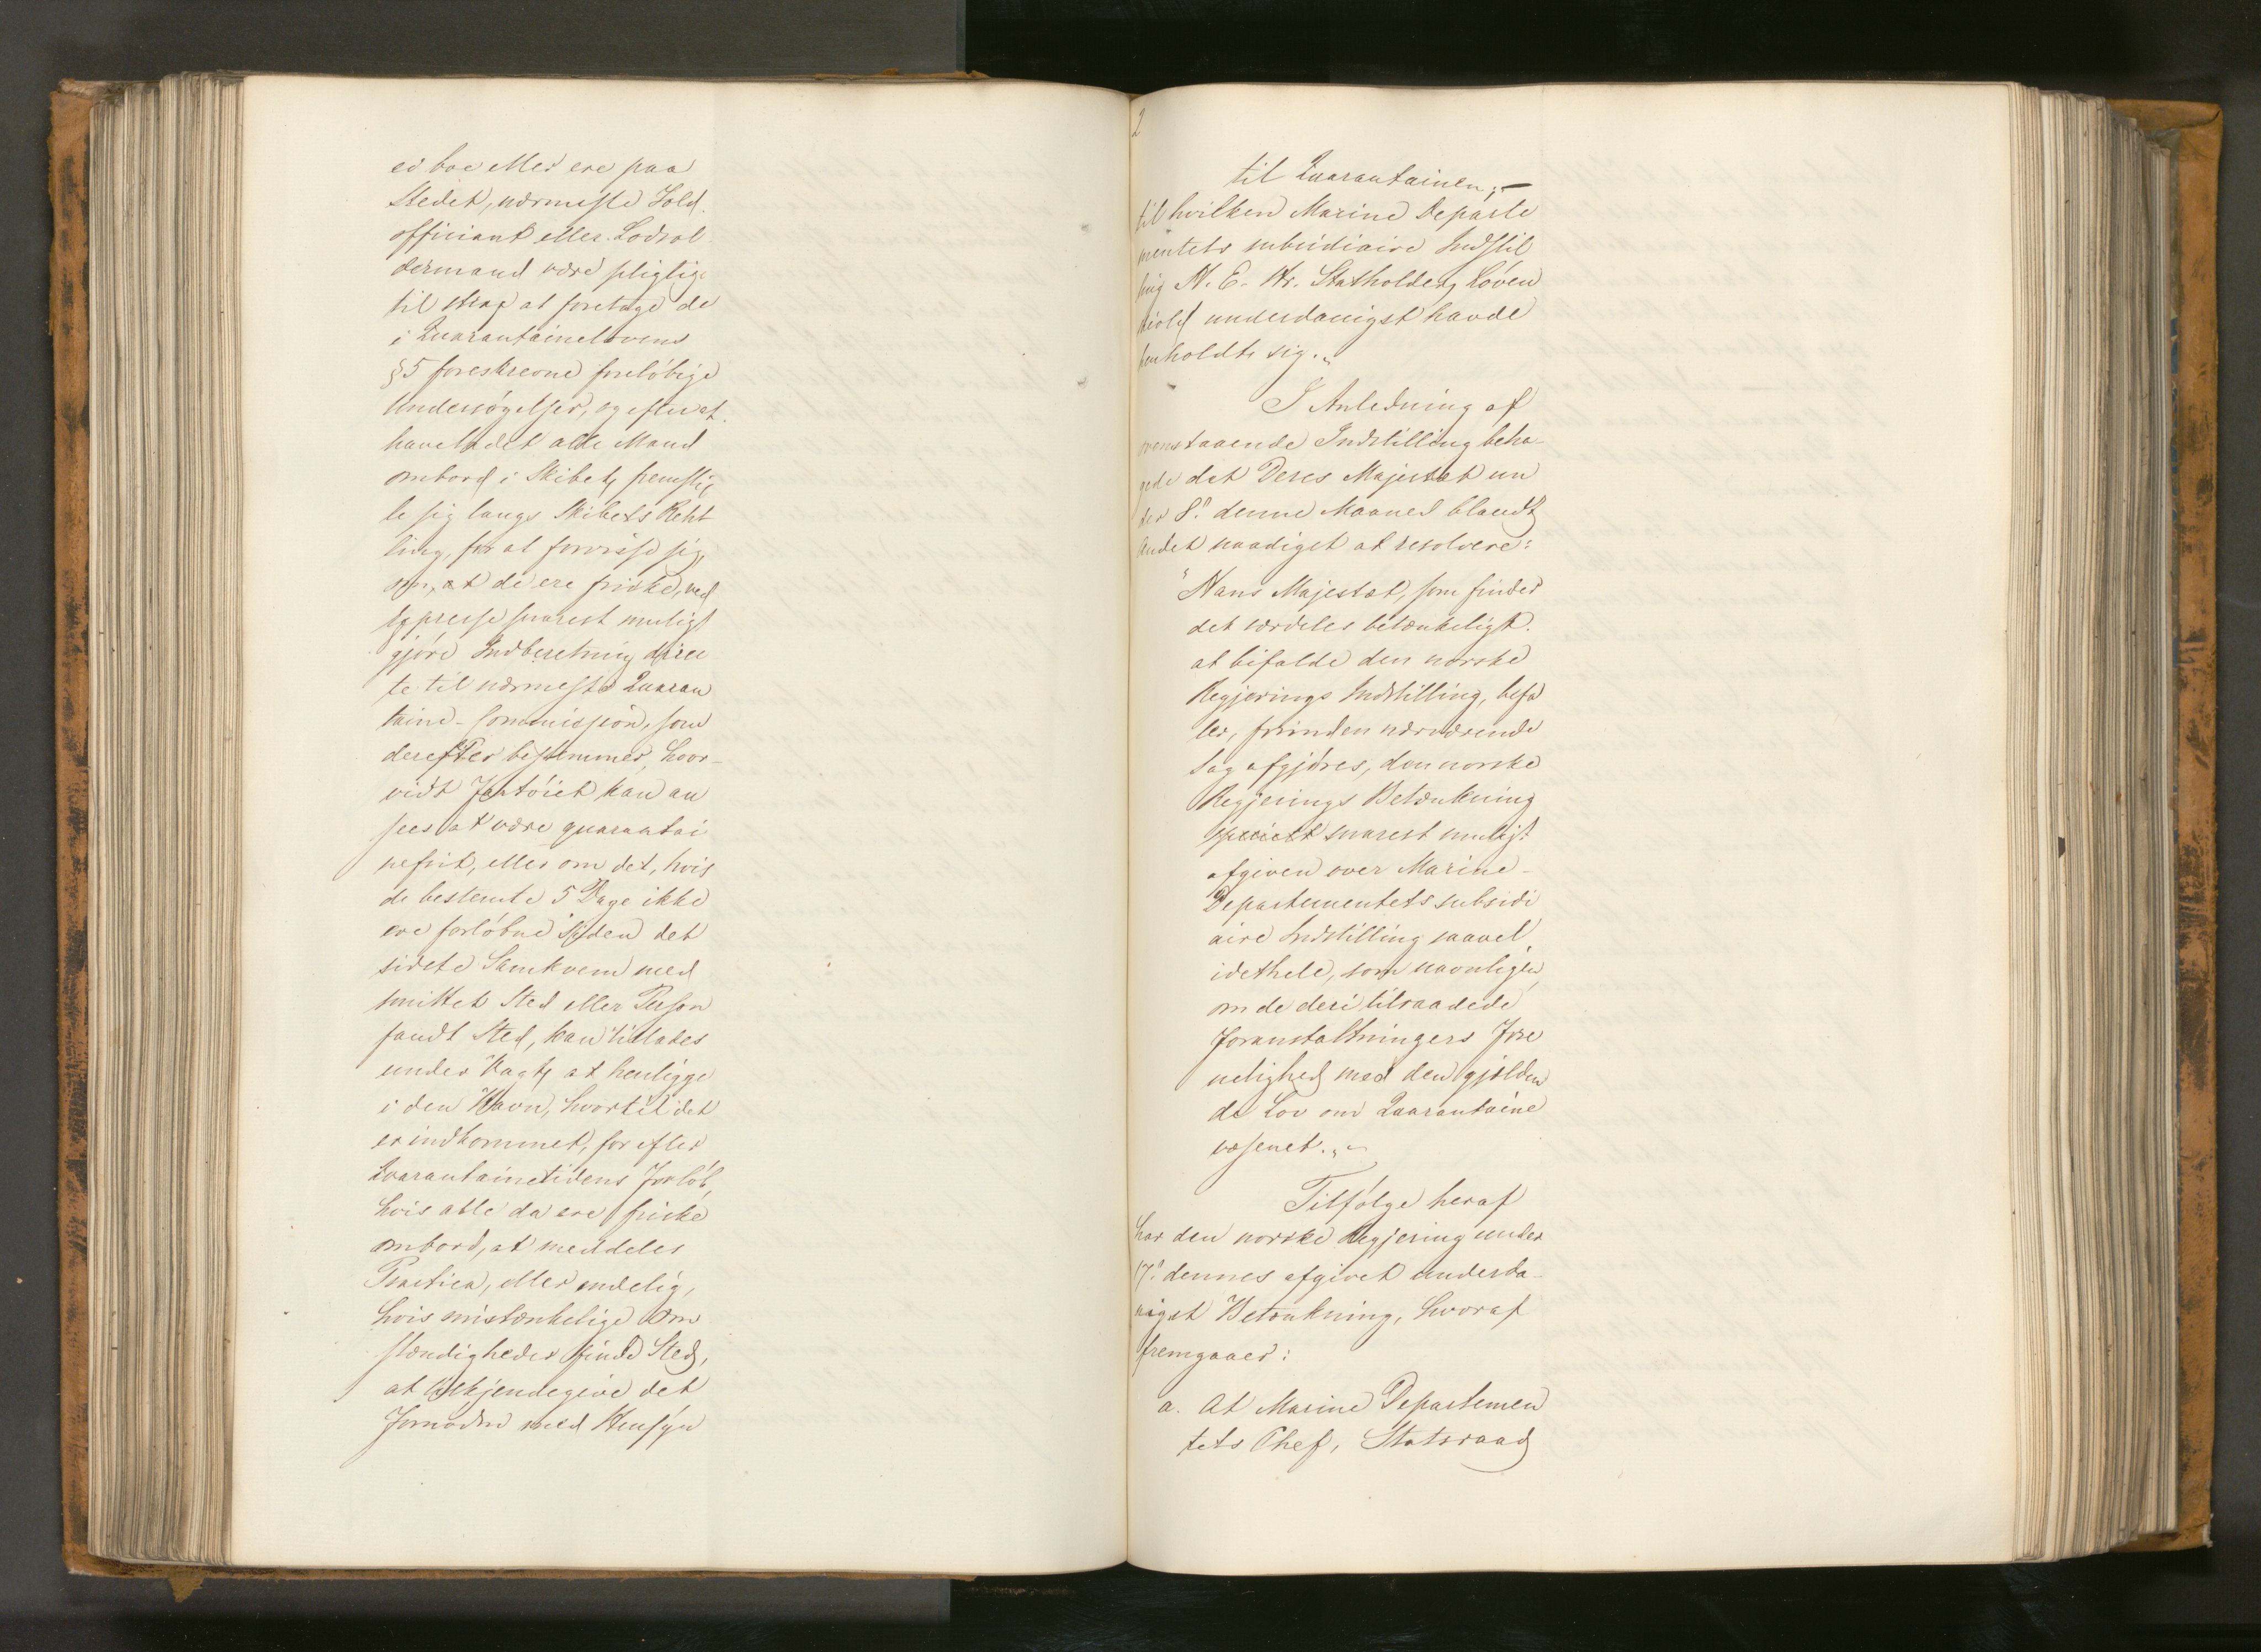 ei boe eller ere paa
Stedet, nærmeste Told
officiant eller Lodsol
dermand være pligtige
til strax at foretage de
i Quarantainelovens
§5 foreskrevne foreløbige
Undersøgelser, og efter at
have ladet alle Mand
ombord i Skibet fremstil
le sig langs Skibets Reht
ling, for at forvisse sig
om, at de ere friske, ved
Expresse snarest muligt
gjøre Indberetning direc
te til nærmeste Quaran
taine-Commission, som
derefter bestemmer, hvor-
vidt Fartøiet kan an
sees at være quarantai
nefrit, eller om det, hvis
de bestemte 5 Dage ikke
ere forløbne siden det
sidste Samkvem med
smittet Sted eller Person
fandt Sted, kan tillades
under Vagt at henligge
i den Havn, hvortil det
er indkommet, for efter
Quarantainetidens Forløb,
hvis alle da ere friske
ombord, at meddeles
Practica, eller endelig,
hvis mistænkelige Om
stændigheder finde Sted,
at tilkjendegive det
Fornødne med Hensyn
2
til Quarantainen;-
til hvilken Marine Departe
mentets subsidiaire Indstil
ling H. E. Hr. Statholder Løven
skiold underdanigst havde
henholdt sig."
I Anledning af
ovenstaaende Indstilling beha-
gede det Deres Majestæt un
der 8de denne Maaned blandt
Andet naadigst at resolvere:
"Hans Majestæt, som finder
det særdeles betænkeligt
at bifalde den norske
Regjerings Indstilling, befa
ler, førinden nærværende
Sag afgjøres, den norske
Regjerings Betænkning
specielt snarest muligt
afgiven over Marine-
Departementets subsidi
aire Indstilling saavel
idethele, som navnligen
om de deri tilraadede
Foranstaltningers Fore
nelighed med den gjelden
de Lov om Quarantaine
væsenet."
Tilfølge heraf
har den norske Regjering under
17de dennes afgivet underda-
nigst Betænkning, hvoraf
fremgaaer:
a. At Marine Departemen
tets Chef, Statsraad